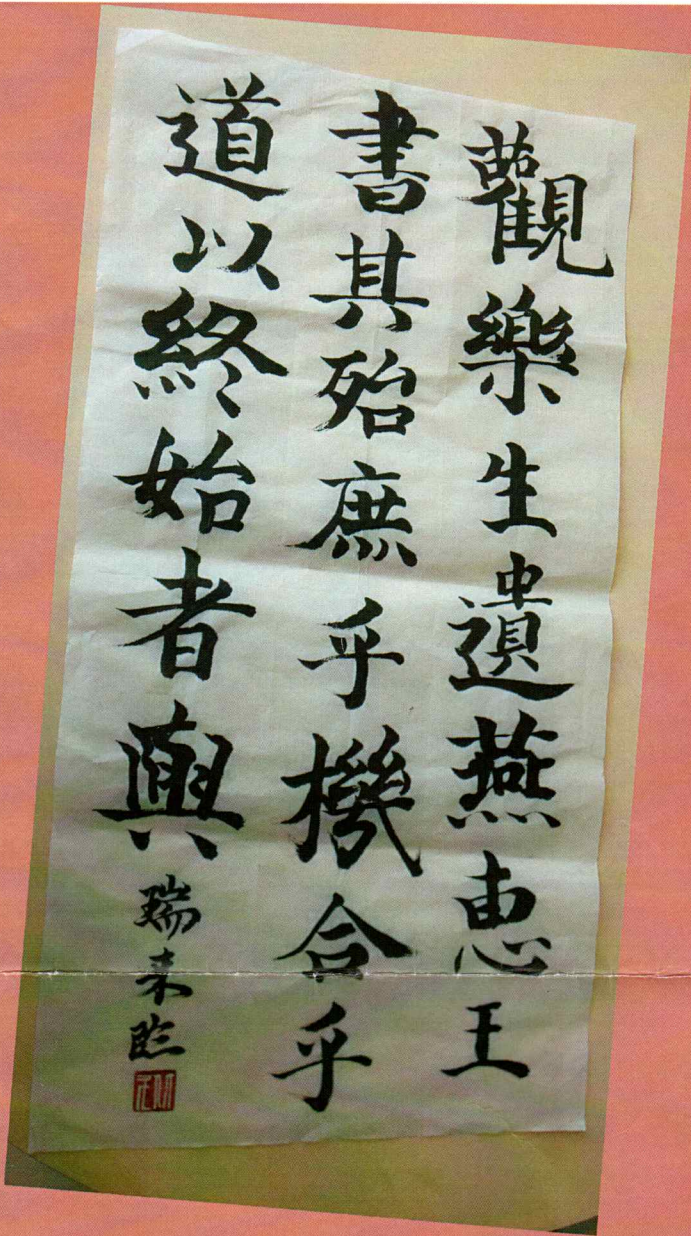 觀樂生遺燕惠王
書其殆庶乎機合乎
道以終始者與
瑞来臨